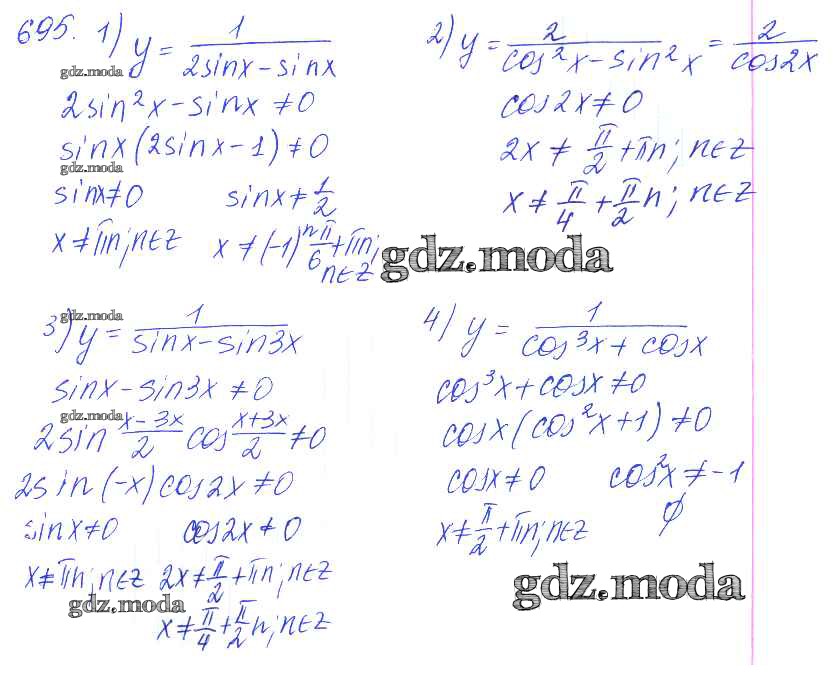 695. 1) y = 1/(2sinx – sinx)
gdz.moda
2sin²x – sinx ≠ 0
sinx(2sinx – 1) ≠ 0
gdz.moda
sinx ≠ 0 sinx ≠ 1/2
x ≠ πn; n∈Z x ≠ (-1)ⁿ π/6 + πn;
n∈Z
2) y = 2/(cos²x – sin²x) = 2/cos2x
cos2x ≠ 0
2x ≠ π/2 + πn; n∈Z
x ≠ π/4 + π/2 n; n∈Z
gdz.moda
gdz.moda
3) y = 1/(sinx – sin3x)
sinx – sin3x ≠ 0
gdz.moda
2sin (x – 3x)/2 cos (x + 3x)/2 ≠ 0
2sin(-x)cos2x ≠ 0
sinx ≠ 0 cos2x ≠ 0
x ≠ πn; n∈Z 2x ≠ π/2 + πn; n∈Z
gdz.moda
x ≠ π/4 + π/2 n; n∈Z
4) y = 1/(cos³x + cosx)
cos³x + cosx ≠ 0
cosx(cos²x + 1) ≠ 0
cosx ≠ 0 cos²x ≠ -1
x ≠ π/2 + πn; n∈Z ∅
gdz.moda